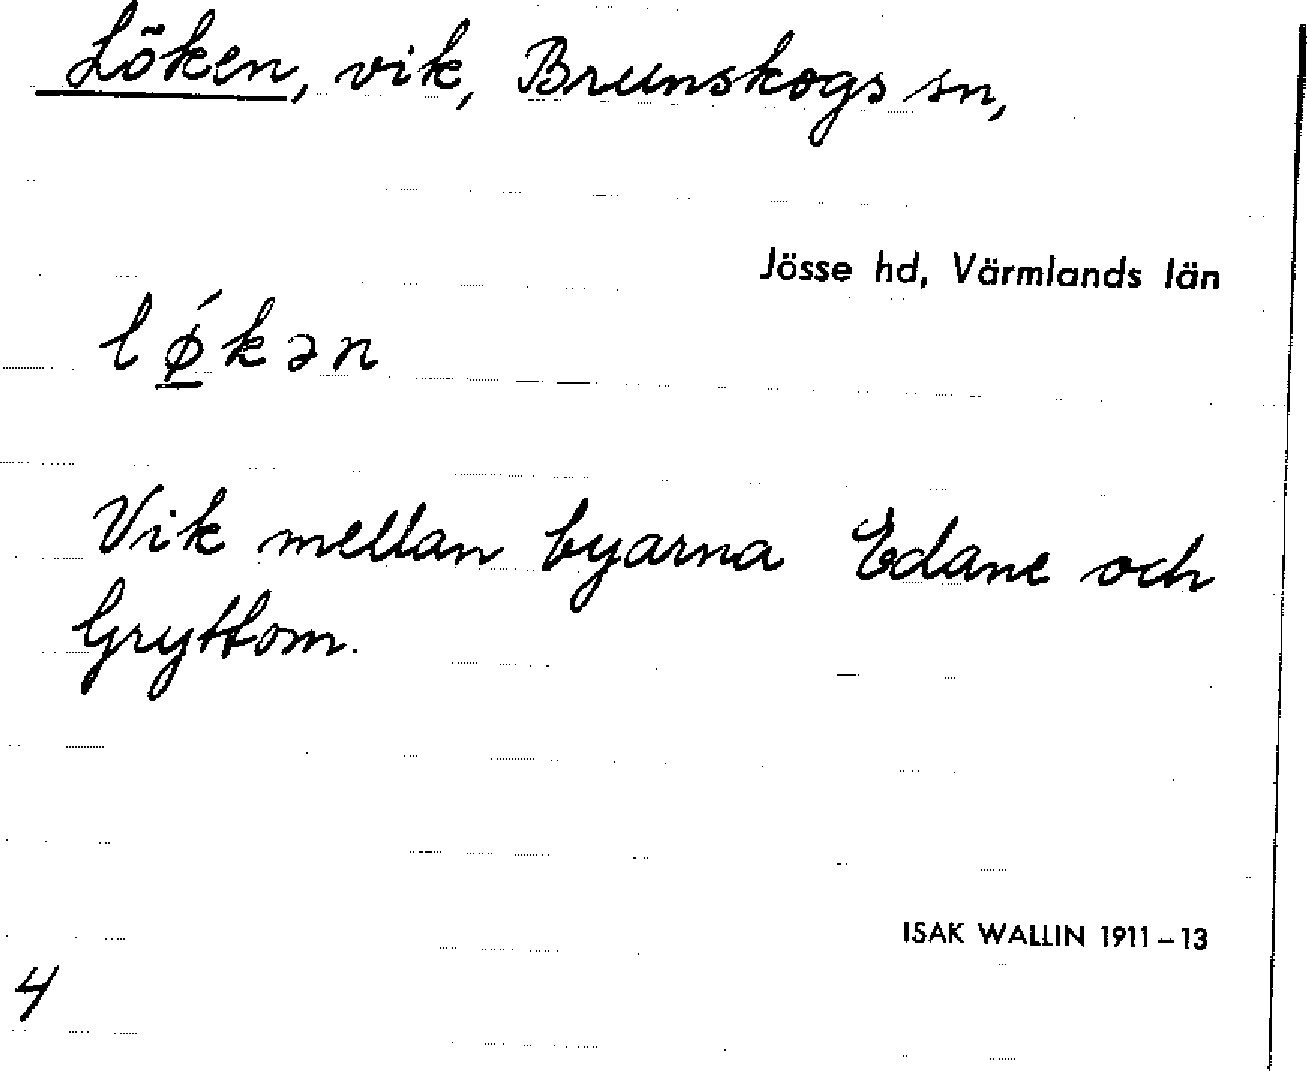 Löken, vik, Brunskogs sn,
Jösse hd, Värmlands län
lǿ̲kən
Vik mellan byarna Edane och
Gryttom.
ISAK WALLIN 1911–13
4